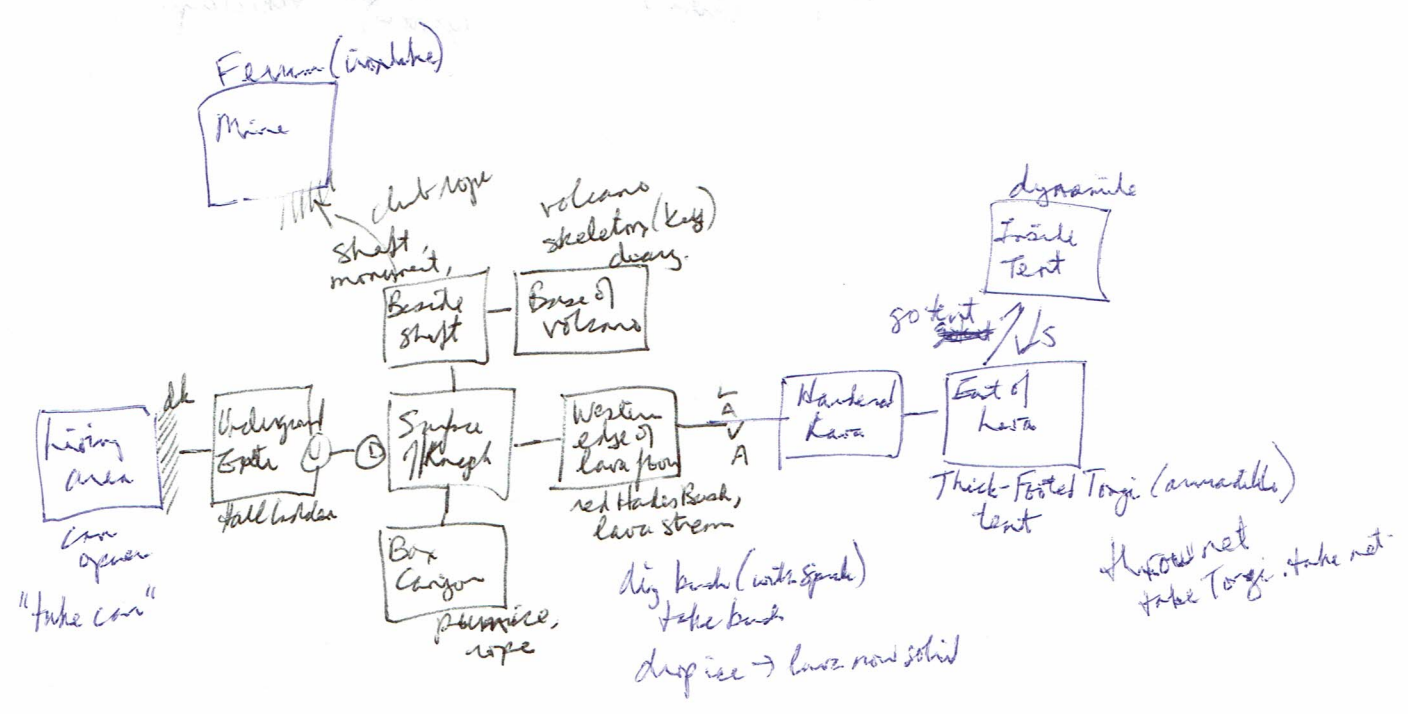 (ironlike)
Mine
climb rope
shaft,
monument,
volcano
skeleton (key)
diary.
Beside
shaft
Base of
volcano
dynamite
Inside
Tent
go tent
S
Living
area
can
opener
"take can"
dk
Underground
U
tall ladder
D
Surface
of
Western
edge of
lava flow
red Hades Bush,
lava stream
L
A
V
A
Hardened
Lava
East of
Lava
Thick-Footed Torgi (armadillo)
tent
Box
Canyon
pumice,
rope
dig bush (with spade)
take bush
drop ice → lava now solid
throw net
take Torgi. take net.